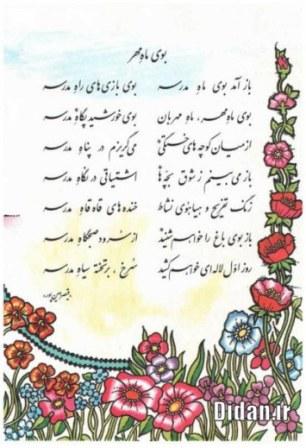 بوی ماه مهر
باز آمد بوی ماه مدرسه بوی بازی‌های راه مدرسه
بوی ماه مهر، ماه مهربان بوی خورشید پگاه مدرسه
از میان کوچه‌های خستگی می‌گریزم در پناه مدرسه
باز می‌بینم ز شوق بچه‌ها اشتیاقی در نگاه مدرسه
زنگ تفریح و هیاهوی نشاط خنده‌های قاه قاه مدرسه
باز بوی باغ را خواهم شنید از سرود صبحگاه مدرسه
روز اول لاله‌ای خواهم کشید سرخ، بر تخته سیاه مدرسه
قیصر امین پور
Didan.ir